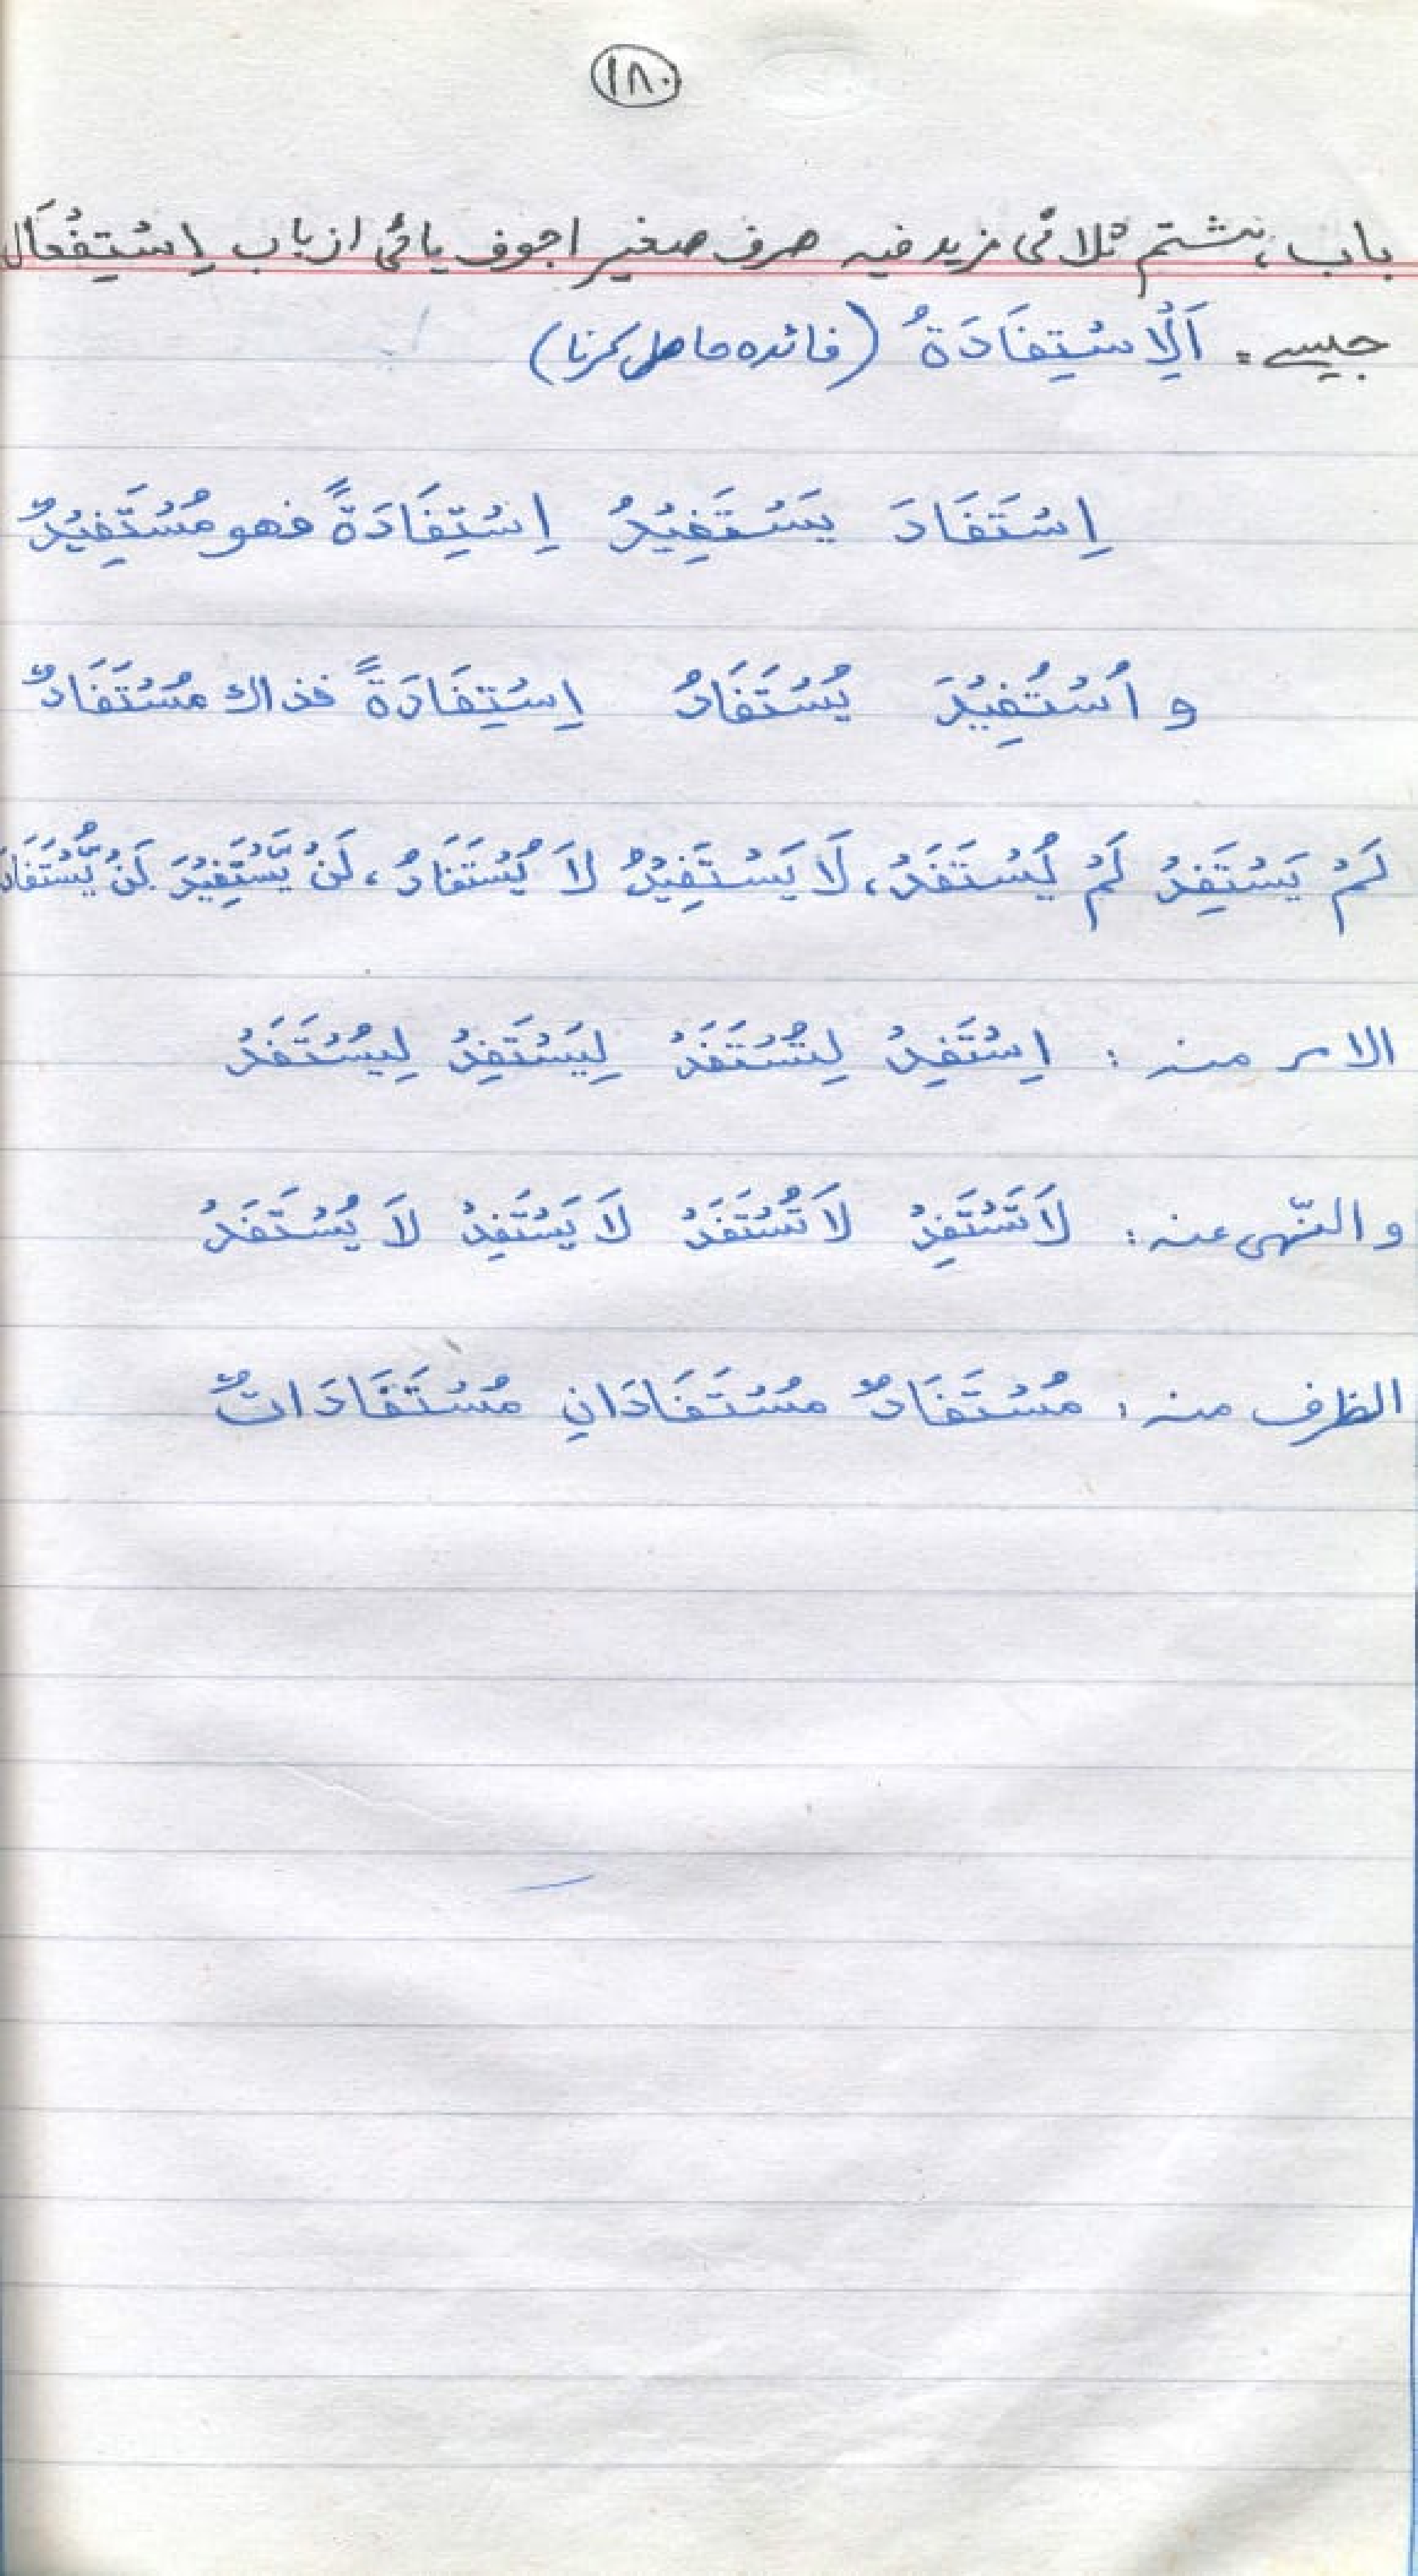 ١٨٠
باب ہشتم ثلاثی مزید فیہ صرف صغیر اجوف یائی از باب اِسْتِفْعَال
جیسے = اَلْاِسْتِفَادَةُ (فائدہ حاصل کرنا)
اِسْتَفَادَ يَسْتَفِيْدُ اِسْتِفَادَةً فهو مُسْتَفِيْدٌ
و اُسْتُفِيْدَ يُسْتَفَادُ اِسْتِفَادَةً فذاك مُسْتَفَادٌ
لَمْ يَسْتَفِدْ لَمْ يُسْتَفَدْ، لَا يَسْتَفِيْدُ لَا يُسْتَفَادُ، لَنْ يَّسْتَفِيْدَ لَنْ يُّسْتَفَادَ
الامر منه : اِسْتَفِدْ لِتُسْتَفَدْ لِيَسْتَفِدْ لِيُسْتَفَدْ
و النّهى عنه : لَا تَسْتَفِدْ لَا تُسْتَفَدْ لَا يَسْتَفِدْ لَا يُسْتَفَدْ
الظرف منه : مُسْتَفَادٌ مُسْتَفَادَانِ مُسْتَفَادَاتٌ